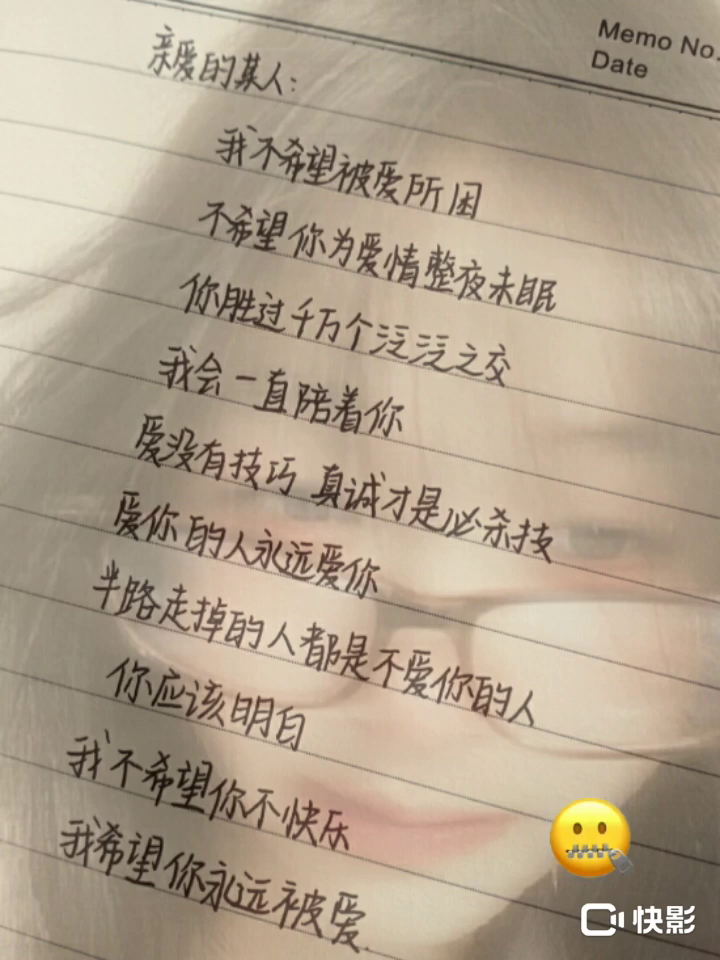 Memo No.
Date
亲爱的某人:
我不希望被爱所困
不希望你为爱情整夜未眠
你胜过千万个泛泛之交
我会一直陪着你
爱没有技巧 真诚才是必杀技
爱你的人永远爱你
半路走掉的人都是不爱你的人
你应该明白
我不希望你不快乐
我希望你永远被爱
快影